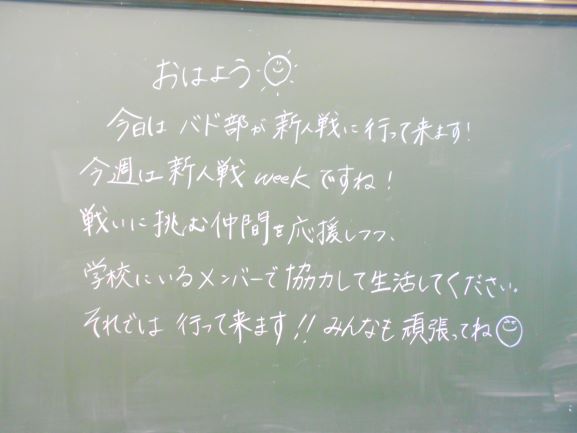 おはよう
今日は バド部が 新人戦に 行って来ます!
今週は 新人戦 week ですね!
戦いに 挑む仲間を応援しつつ、
学校にいるメンバーで 協力して生活してください。
それでは 行って来ます!! みんなも 頑張ってね